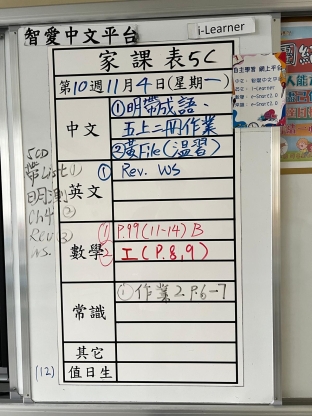 智愛中文平台
i-Learner
家課表5C
第10週11月4日(星期一)
中文
①明帶成語、
五上二冊作業
②黃File(溫習)
英文
① Rev. WS
數學
① P.99(11-14) B
② 工(P.8,9)
常識
① 作業2 P.6-7
其它
值日生
(12)
5CD
帶List ①
明測
Ch4 ②
Rev ③
ws.
自主學習 網上平台